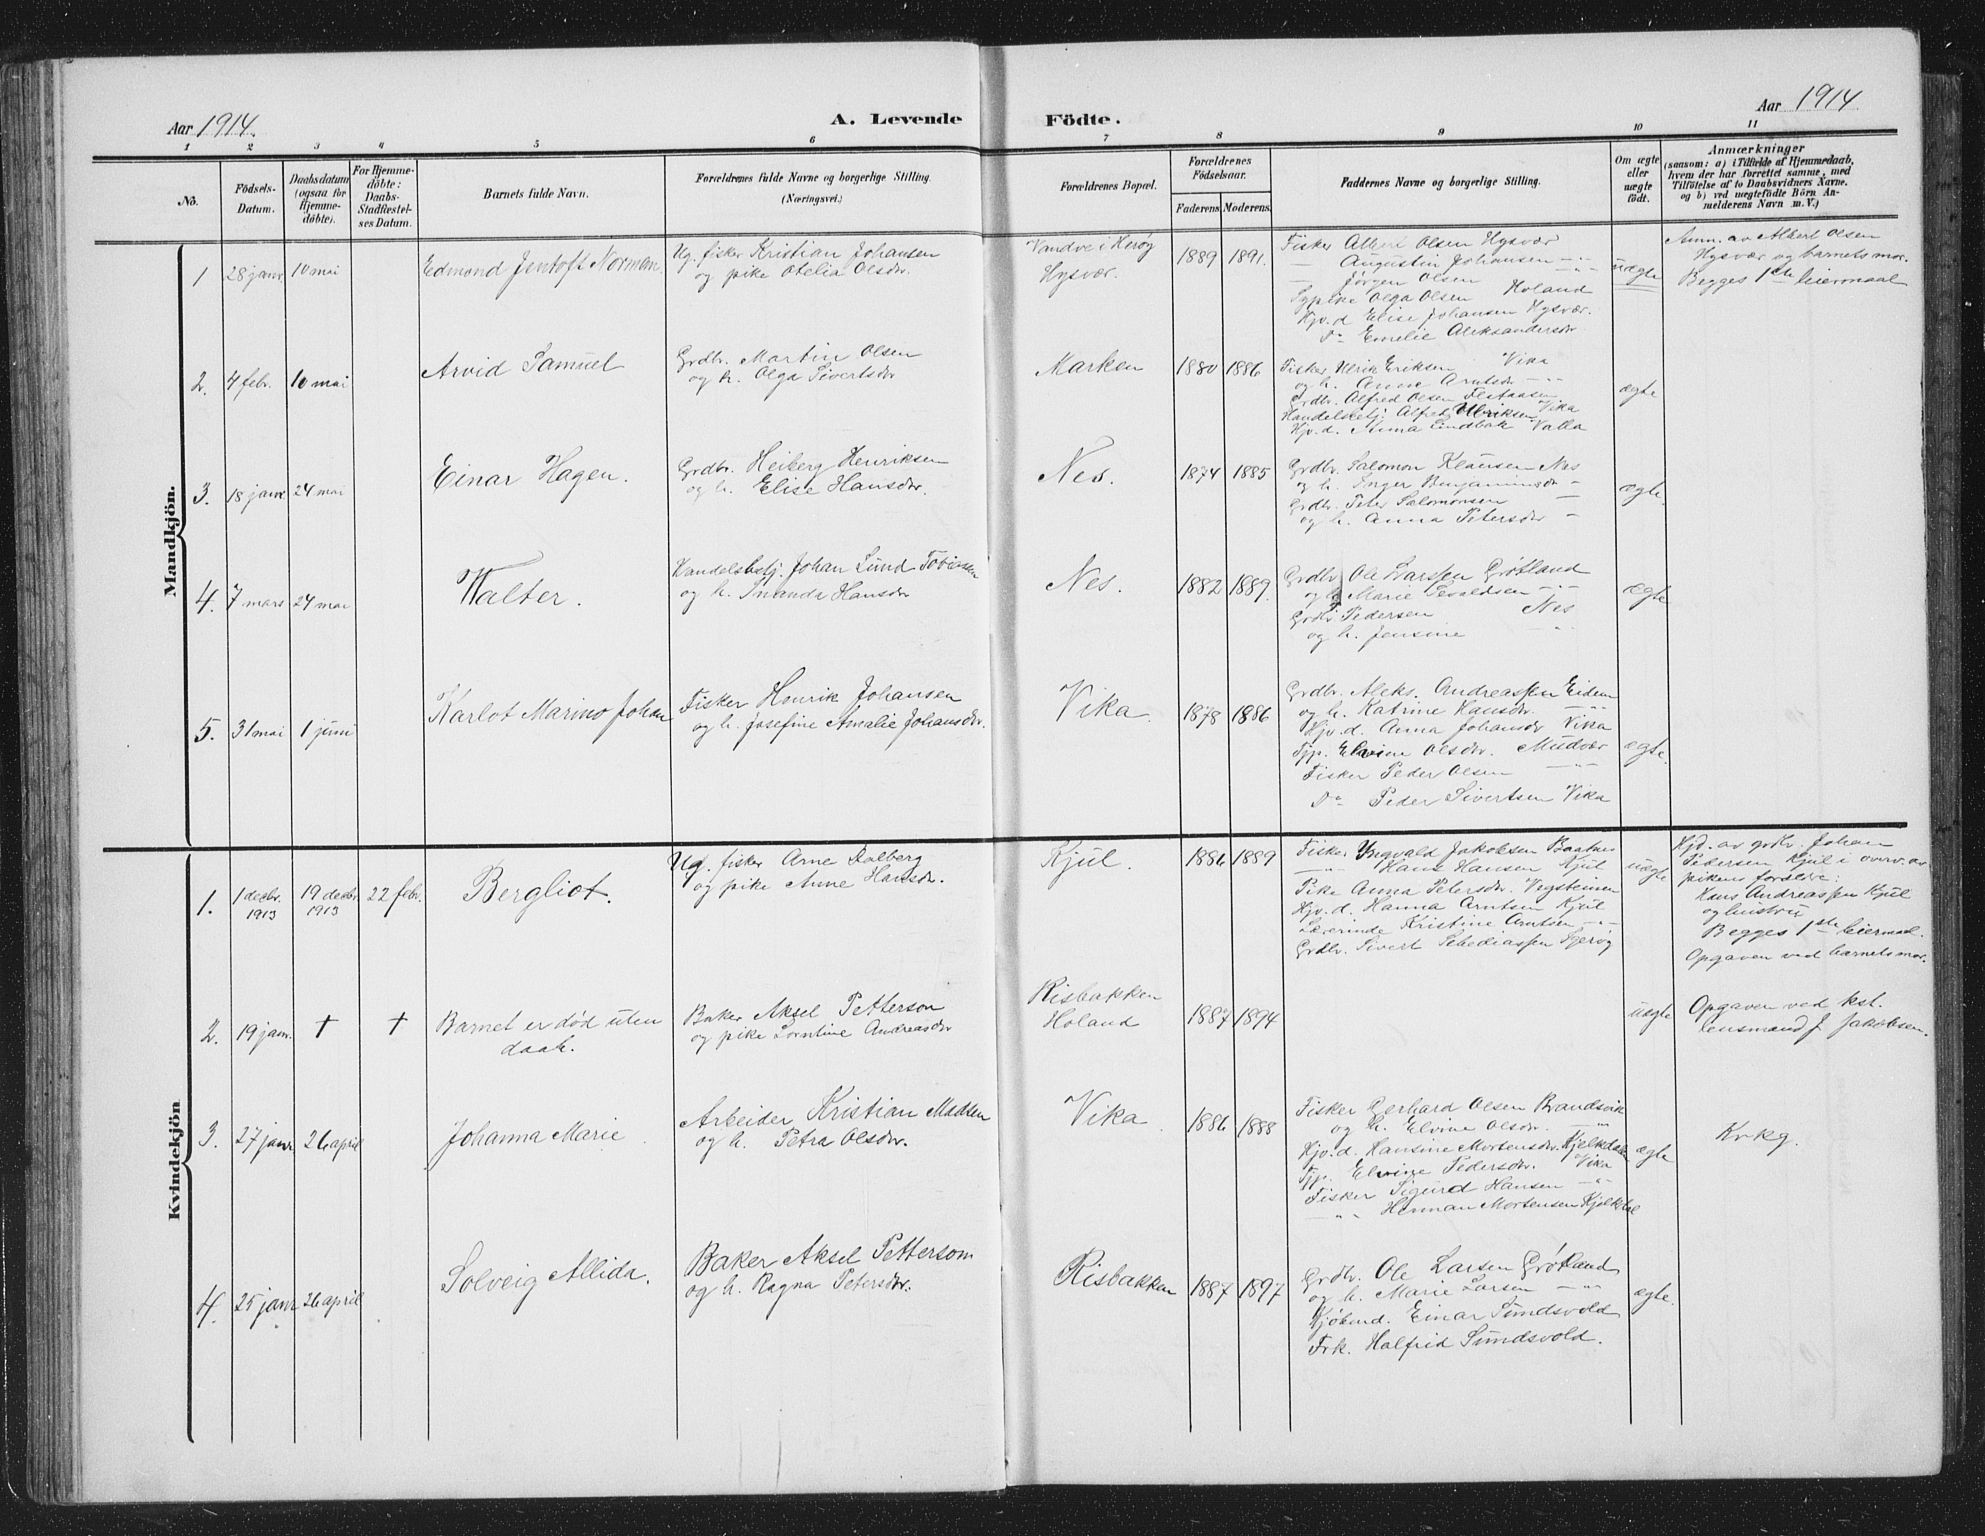 Aar 1914.
A. Levende Födte.
Aar 1914
1 2 3 4 5 6 7 8 9 10 11
No.
Födsels-Datum.
Daabsdatum (ogsaa for Hjemme-döbte).
For Hjemme-döbte: Daabs-Stadfæstel-ses Datum.
Barnets fulde Navn.
Forældrenes fulde Navne og borgerlige Stilling. (Næringsvei.)
Forældrenes Bopæl.
Forældrenes Födselsaar.
Faderens. Moderens.
Faddernes Navne og borgerlige Stilling.
Om ægte eller uægte födt.
Anmærkninger (saasom: a) i Tilfælde af Hjemmedaab, hvem der har forrettet samme, med Tilföielse af to Daabsvidners Navne. og b) ved uægtefödte Börn An-melderens Navn m. V.)
Mandkjön.
1 28 janr. 10 mai Edmond Jentoft Norman.
Ug. fisker Kristian Johansen
og pike Otelia Olsdr.
Vandve i Herøy
Hysvær.
1889 1891.
Fisker Albert Olsen Hysvær
— Augustin Johansen —"—
— Jørgen Olsen —"—
Sypike Olga Olsen Holand
Hjv. d. Elise Johansen Hysvær.
Do Emelie Aleksandersdr
uægte
Anm. av Albert Olsen
Hysvær og barnets mor.
Begges 1ste leiermaal
2. 4 febr. 10 mai Arvid Samuel
Grdbr. Martin Olsen
og h. Olga Sivertsdr
Marken
1880 1886
Fisker Ulrik Eriksen Vika
og h. Anne Arntsdr —"—
Grdbr. Alfred Olsen
Handelsbetj. Alfred Ulriksen Vika
Hjv. d. Anna Lindbak Valla
ægte
3. 18 janr 24 mai Einar Hagen.
Grdbr. Heiberg Henriksen
og h. Elise Hansdr.
Nes.
1874 1885
Grdbr. Salomon Klausen Nes
og h. Inger Benjaminsdr —
Grdbr. Peter Salomonsen —
og h. Anna Petersdr —
ægte
4. 7 mars 24 mai Walter.
Handelsbetj. Johan Lund Tobiassen
og h. Inanda Hansdr
Nes.
1882 1889.
Grdbr Ole Larssen Grøtland
og h Marie Sevaldsen —"—
Grdbr Pedersen Nes
og h. Jensine "
ægte
5. 31 mai 1 juni Karlot Marino Johan
Fisker Henrik Johansen
og h. Josefine Amalie Johansdr.
Vika.
1878 1886
Grdbr. Aleks. Andreassen Eidem
og h. Katrine Hansdr. —"—
Hjv. d. Anna Johansdr Vika
Tjp. Elvine Olsdr. Mudvær
Fisker Peder Olsen —"—
Do Peder Sivertsen Vika
ægte.
Kvindekjön
1. 1 decbr. 1913 19 decbr. 1913 22 febr. Bergliot.
Ug. fisker Arne Dalberg
og pike Anne Hansdr.
Kjul.
1886 1889
Fisker Yngvald Jakobsen Baatnes
—"— Hans Hansen Kjul
Pike Anna Petersdr. Vegsteinen
Hjv. d. Hanna Arntsen Kjul
Lærerinde Kristine Arntsen —"—
Grdbr. Sivert
uægte
Hjd. av grdbr. Johan
Pedersen Kjul i overv. av
pikens forældre:
Hans Andreassen Kjul
og hustru
Begges 1ste leiermaal.
Opgaven ved barnets mor.
2. 19 janr. † † Barnet er død uten
daab.
Baker Aksel Petterson
og pike Lorntine Andreasdr
Risbakken
Holand
1887 1894
uægte
Opgaven ved kst.
lensmand J. Jakobsen.
3. 27 janr. 26 april Johanna Marie
Arbeider Kristian Madsen
og h. Petra Olsdr.
Vika
1886 1888
Fisker Gerhard Olsen Brandsvik
og h. Elvine Olsdr. —"—
Hjv. d. Hansine Mortensdr. Kjelkdalen
Tjp. Elvine Pedersdr. Vika
Fisker Sigurd Hansen —"—
—"— Herman Mortensen Kjelkdal
ægte
Kvkg.
4. 25 janr 26 april Solveig Allida.
Baker Aksel Petterson
og h. Ragna Petersdr.
Risbakken
1887 1897
Grdbr. Ole Larsen Grøtland
og h. Marie Larsen —"—
Kjøbmd. Einar Sundsvold
Frk. Halfrid Sundsvold.
ægte.